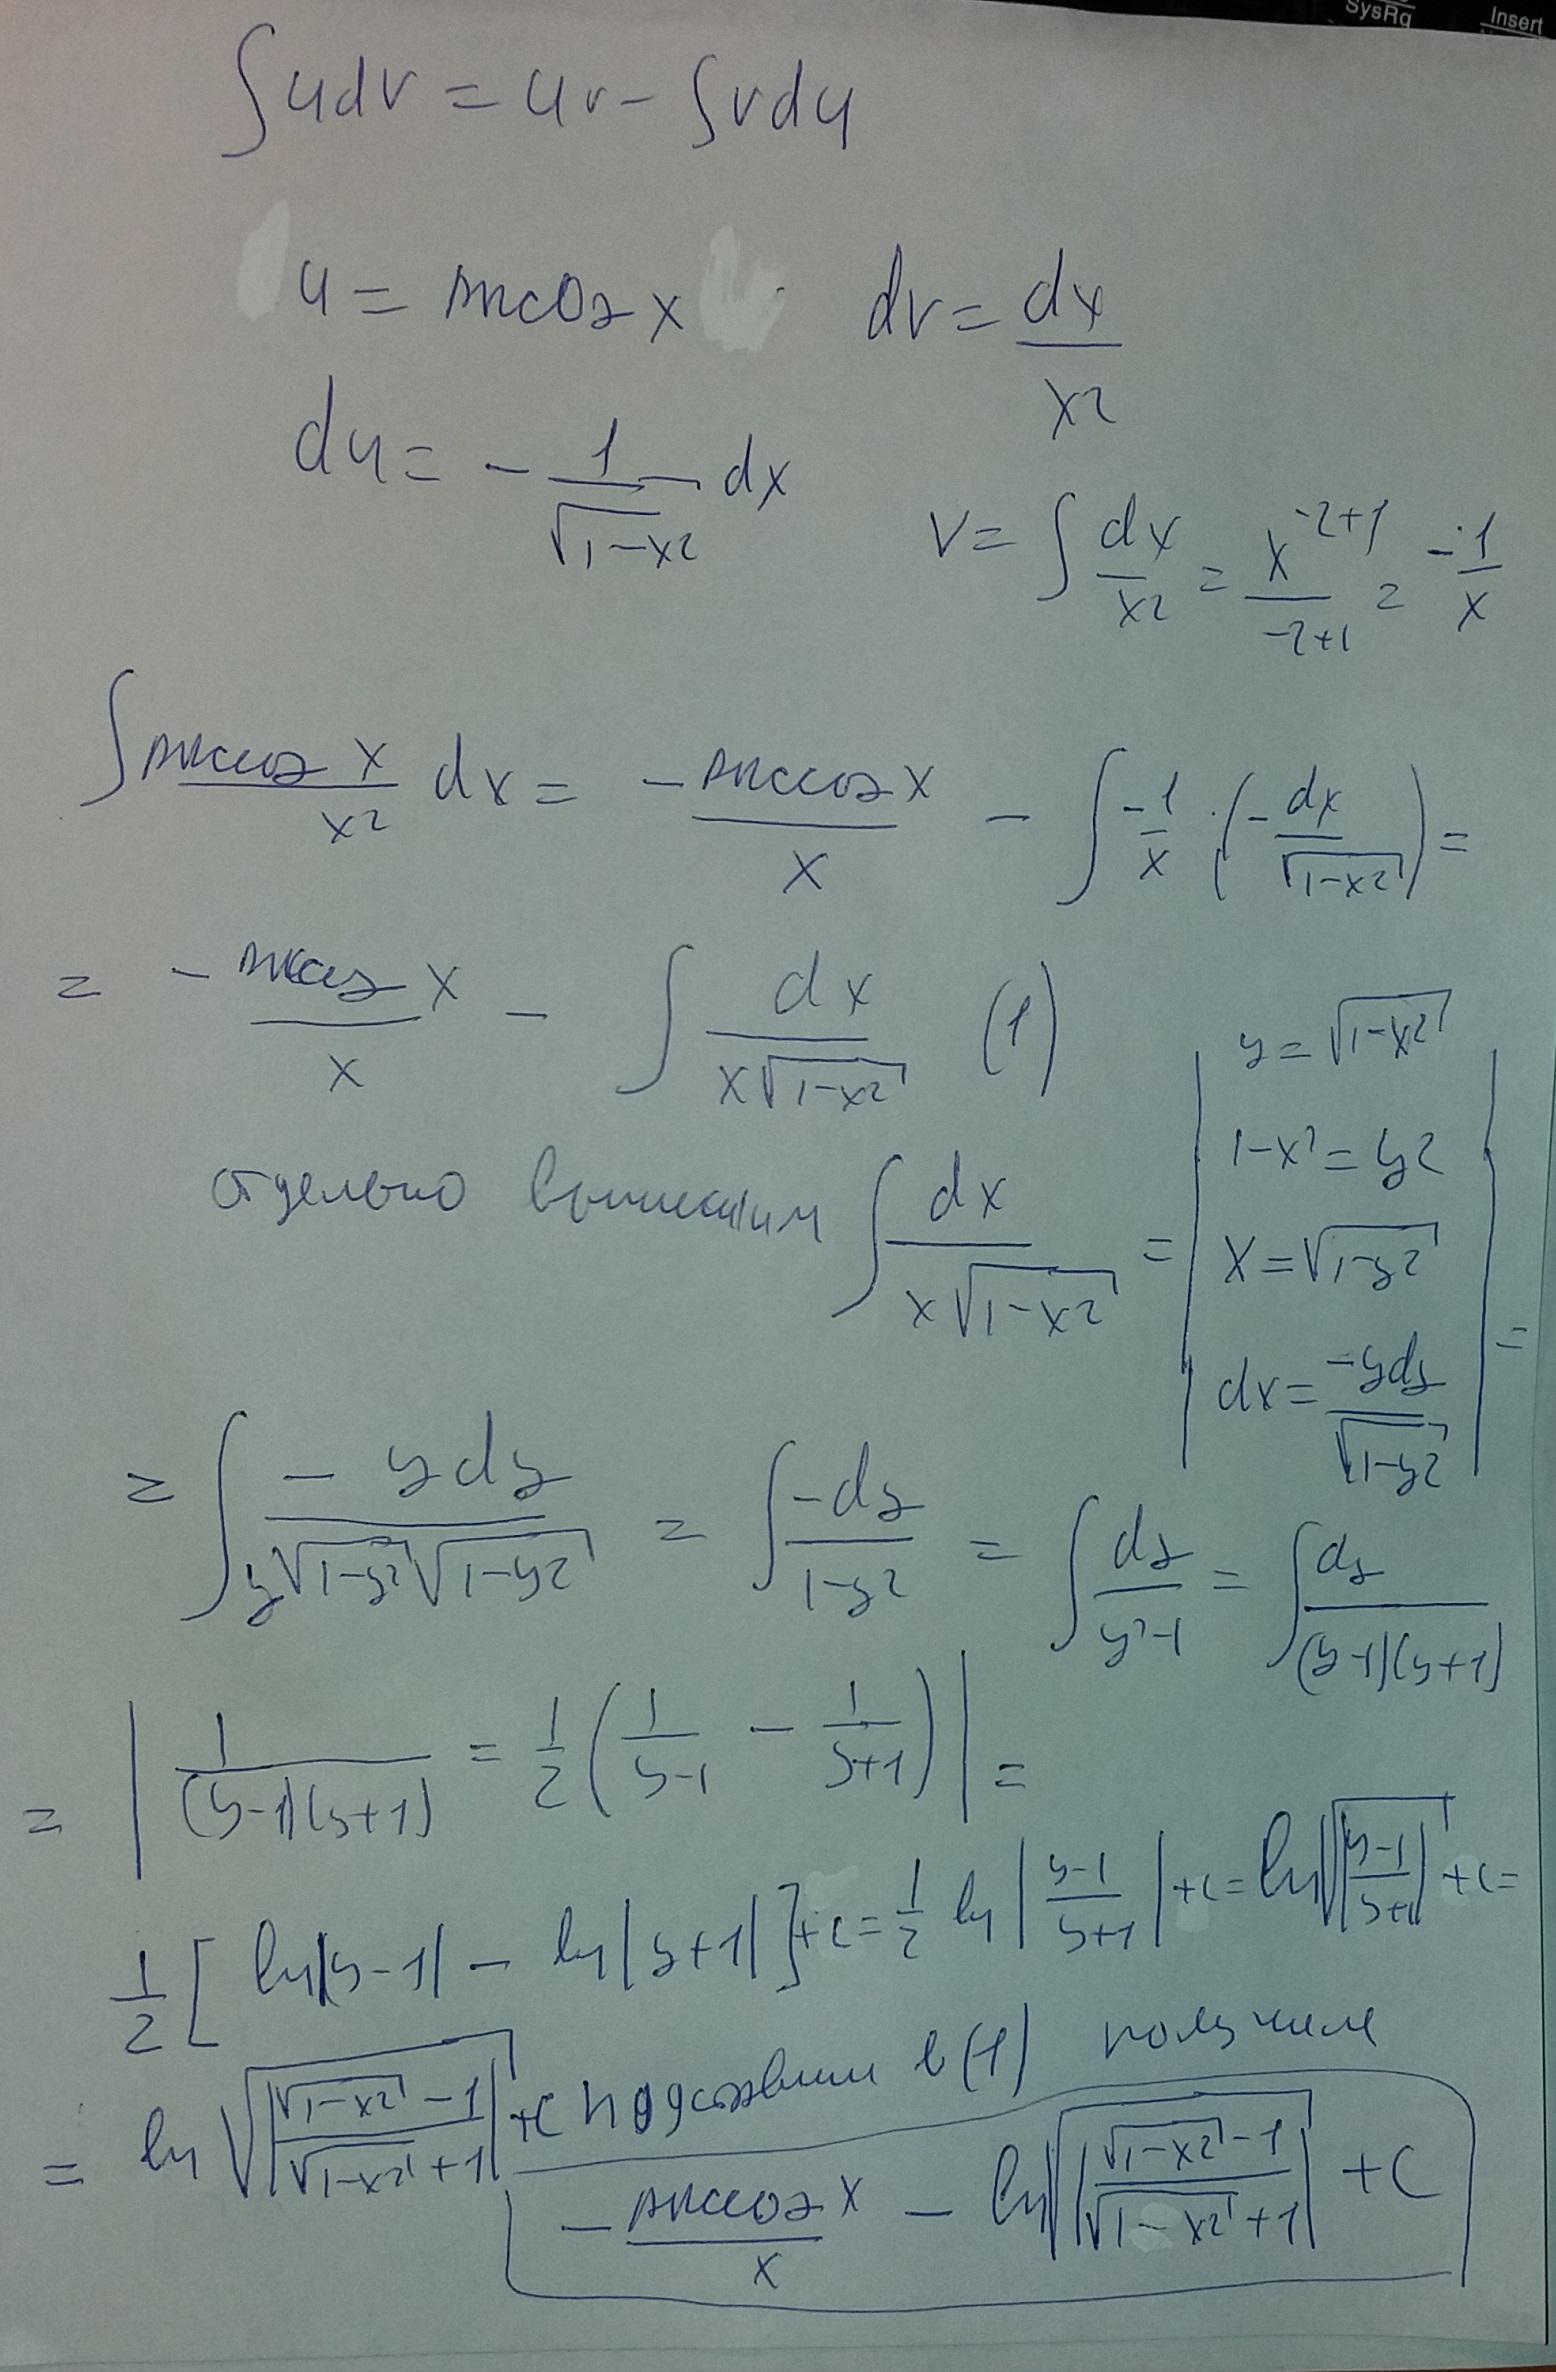 SysRq Insert
∫udv = uv - ∫vdu
u = arccos x dv = dx/x²
du = - 1/√(1-x²) dx
v = ∫ dx/x² = x^(-2+1)/(-2+1) = -1/x
∫ arccos x/x² dx = - arccos x/x - ∫ -1/x · (- dx/√(1-x²)) =
= - arccos x/x - ∫ dx/(x√(1-x²)) (1)
отдельно вычислим ∫ dx/(x√(1-x²)) = | y = √(1-x²)
1-x² = y²
x = √(1-y²)
dx = -ydy/√(1-y²) | =
= ∫ - ydy/(y√(1-y²)√(1-y²)) = ∫ -dy/(1-y²) = ∫ dy/(y²-1) = ∫ dy/((y-1)(y+1))
= | 1/((y-1)(y+1)) = 1/2 (1/(y-1) - 1/(y+1)) | =
1/2 [ ln|y-1| - ln|y+1| ] + c = 1/2 ln |(y-1)/(y+1)| + c = ln √|(y-1)/(y+1)| + c =
= ln √|(√(1-x²) - 1)/(√(1-x²) + 1)| + c подставим в (1) получим
- arccos x/x - ln √|(√(1-x²) - 1)/(√(1-x²) + 1)| + C